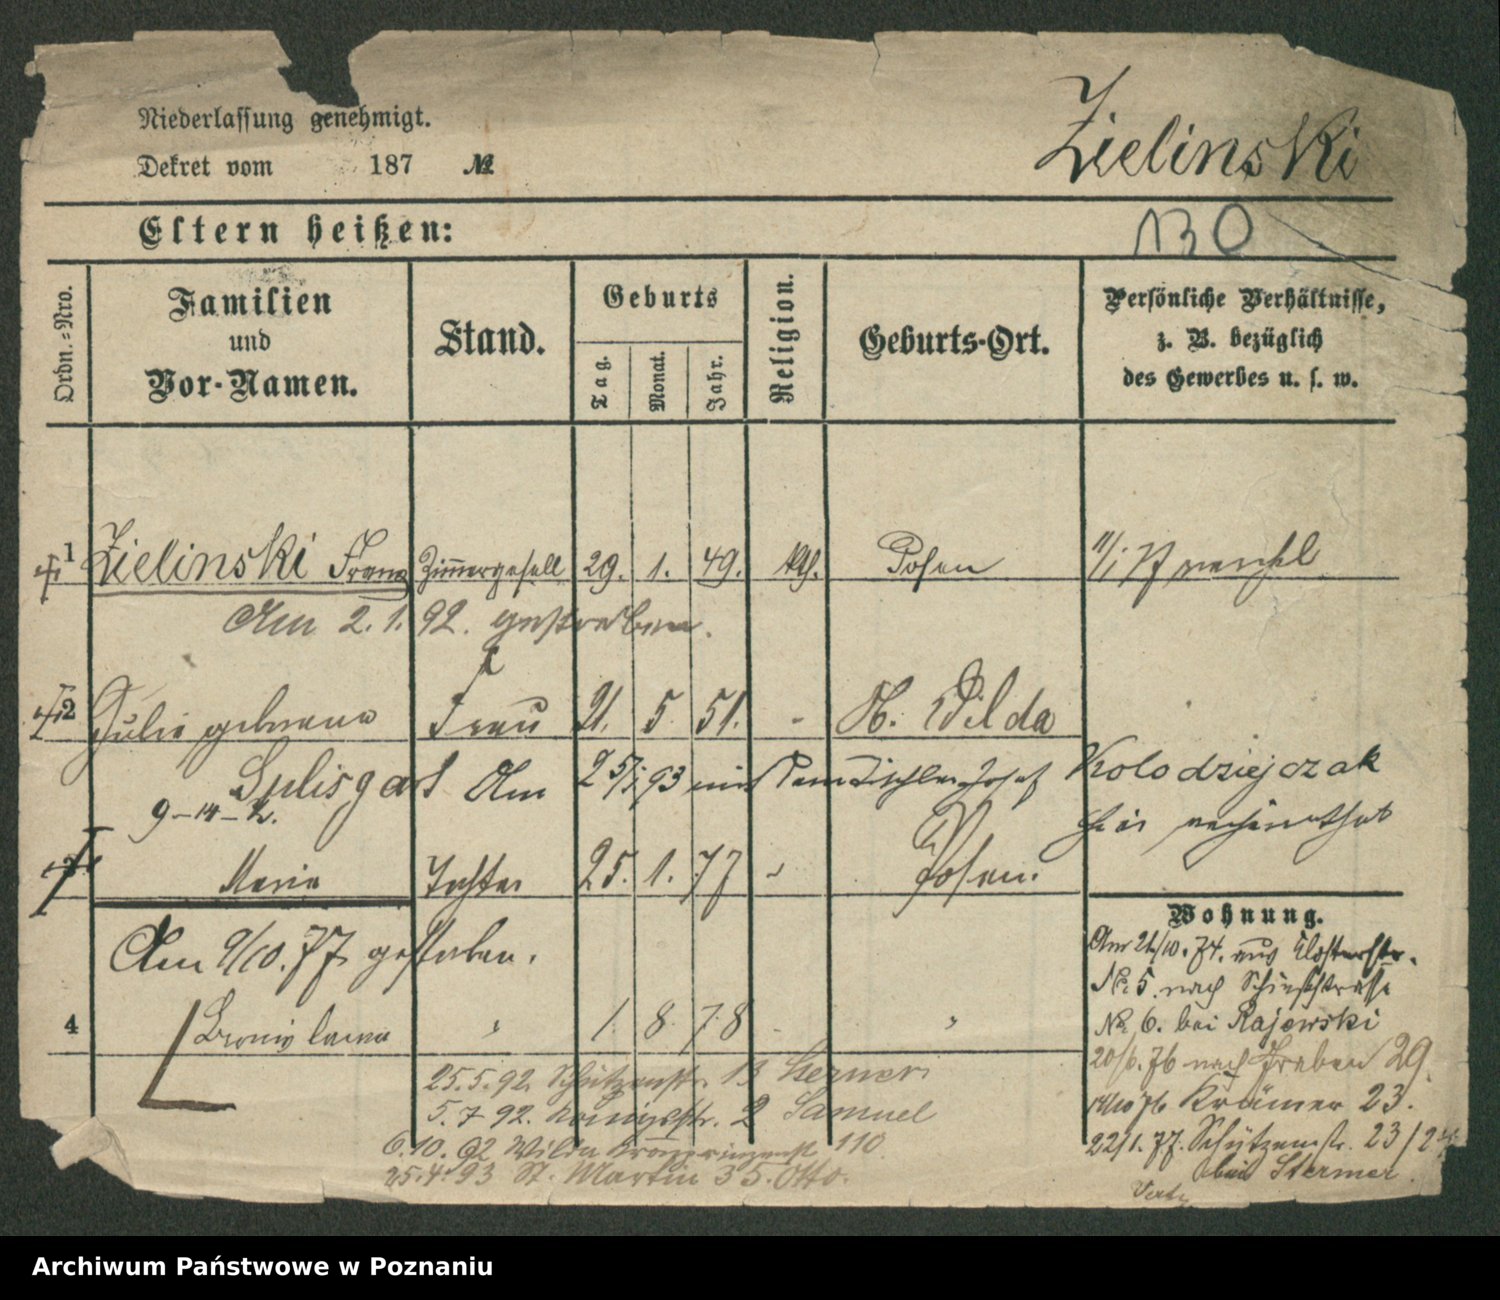 Niederlassung genehmigt.
Dekret vom 187 №
Zielinski
Eltern heißen:
130
Ordn.-Nro.
Familien
und
Vor-Namen.
Stand.
Geburts
Tag.
Monat.
Jahr.
Religion.
Geburts-Ort.
Persönliche Verhältnisse,
z. B. bezüglich
des Gewerbes u. s. w.
1 Zielinski Franz Zimmergesell 29. 1. 49. kth. Posen
Am 2. 1. 92. gestorben.
2 Julie geborene Frau 21. 5 51. St. Wilda
Am 25/5 93 mit dem Tischler Josef Kolodziejczak
hier verheirathet
3 Maria Tochter 25. 1. 77 Posen.
Am 9/10. 77 gestorben.
4 Bronislawa " 1. 8. 78 "
Wohnung.
Am 21/10. 74. aus Klosterstr.
No. 5. nach Schießstrasse
No. 6. bei Rajewski
20/6. 76 nach Graben 29.
Krämer 23.
22/1. 77. Schützenstr. 23/24
Stermer
25.5.92. Schützenstr. 13 Sterner
5.7 92. Königsstr. 2 Samuel
6.10.92 Wilda Kronprinzenst 110
25.4.93 St. Martin 35. Otto.
Archiwum Państwowe w Poznaniu